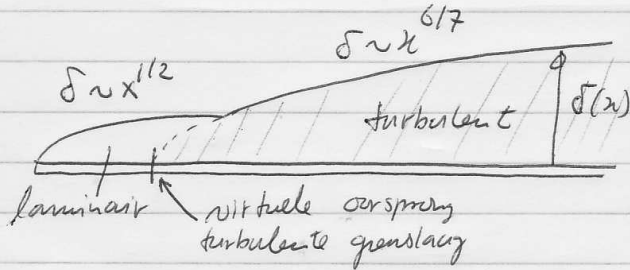 δ ~ x^{6/7}
δ ~ x^{1/2}
turbulent
δ(x)
laminair
virtuele oorsprong
turbulente grenslaag